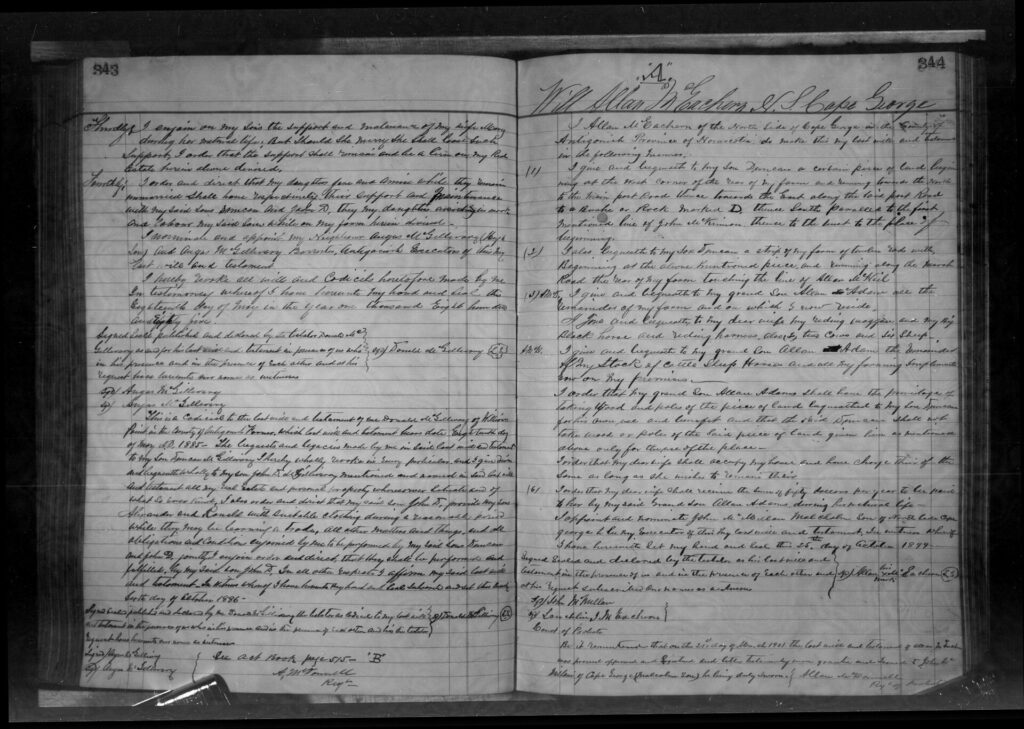 343
Thirdly I enjoin on my Sons the support and maintenance of my wife Mary
during her natural life, But Should She Marry She Shall loose Such
Support, I order that the support Shall remain and be a lien on my Real
estate herein above devised.
Fourthly I order and direct that my daughters Jane and Annie while they remain
unmarried Shall have respectively their Support and Maintenance
with my Said Sons Duncan and John D, they my daughters
and labour my Said Sons while on my farm herein devised.
I nominate and appoint my Nephews Angus McGillivray (Hugh's
Son) and Angus McGillivray Barrister, Antigonish Executors of this my
last will and testament
I hereby revoke all will and Codicils heretofore made by me
In testimony whereof I have hereunto my hand and Seal this
Eighteenth day of May in the year one thousand Eight hundred
and Eighty five.
Signed Sealed published and declared by the testator Donald Mc
Gillivray as and for his last will and testament in presence of us who
in his presence and in the presence of each other and at his
request have hereunto our names as witnesses
sg/ Donald McGillivray LS
sg/ Angus McGillivray
sg/ Angus McGillivray
This is a Codicil to the last will and testament of me Donald McGillivray of
in the County of Antigonish Farmer, which last will and testament bears date Eighteenth day
of May AD. 1885 - The bequests and legacies made by me in Said last will and testament
to my Son Duncan McGillivray I hereby wholly revoke in every particular and I give devise
and bequeath wholly to my Son John D. McGillivray mentioned and named in Said last will
and testament all my real estate and personal property wheresoever Situate and of
what So ever kind, I also order and direct that my said Son John D, provide my Sons
Alexander and Ronald with Suitable clothing during a reasonable period
while they may be learning a trade, all other matters and things and the
obligations and Conditions enjoined by me to be performed by my Said Sons Duncan
and John D. jointly I enjoin order and direct that they Shall be performed and
fulfilled, by my Said Son John D. In all other respects I affirm my Said last will
and testament. In witness whereof I have hereunto my hand and Seal Subscribed and Set this
day of October 1886-
Signed Sealed published and declared by me Donald McGillivray the testator as a Codicil to my last will
and testament in the presence of us who in his presence and in the presence of each other and his
request have hereunto our names as witnesses
sg/ Donald McGillivray LS
Signed/ Angus McGillivray
sg/ Angus McGillivray
See Act Book page 515 - "B"
Regr
344
"A"
Will Allan McEachern N.S. Cape George
I Allan McEachern of the North Side of Cape George in the County of
Antigonish Province of Novascotia do make this my last will and testament
in the following manner.
(1) I give and bequeath to my Son Duncan a certain piece of land beginning
at the West corner of the rear of my farm and running towards the North
to the Main post Road thence towards the East along the said post Road
to a Rock Marked D thence South parallel to the first
mentioned line of John McKinnon thence to the west to the place of
beginning.
I also bequeath to my Son Duncan a strip of my farm of twelve rods width
Beginning at the above mentioned piece and running along the
Road the rear of my farm touching the line of Allan McNeil
I give and bequeath to my grand Son Allan Adam all the
remainder of my farm and on which I now reside
I give and bequeath to my dear wife my riding waggon and my big
black horse and riding harness also Cows and Six Sheep.
I give and bequeath to my grand Son Allan Adam the remainder
of my Stock of Cattle Sheep Horses and all my farming implements
now on my premises.
I order that my grand Son Allan Adams Shall have the privilege of
taking Wood and poles of the piece of land bequeathed to my Son Duncan
for his own use and benefit and that the Said Duncan Shall not
take wood or Poles of the Said piece of land given him as mentioned
above only for the use of the place.
I order that my dear wife Shall occupy my house and have charge thereof the
Same as long as She wishes to remain there
(6) I order that my dear wife Shall receive the Sum of fifty dollars per year to be paid
to her by my said Grand Son Allan Adams during her natural life.
I appoint and nominate John McMillan Malcolm Son of N. Side Cape
George to be my Executor of this my last will and testament, In witness whereof
I have hereunto Set my hand and Seal this 25th day of October 1899-
Signed Sealed and declared by the testator as his last will and
testament in the presence of us and in the presence of each other and
at his Request Subscribed our names as witnesses
sg/ Allan his mark McEachern LS
sg/ John McMillan
sg/ Lauchlin J. McEachern
Court of Probate
Be it remembered that on the day of March 1901 the last will and testament of Allan
was proved approved and Registered and letters testamentary were granted and issued to John Mc
Millan of Cape George (Malcolm Son) he being duly Sworn